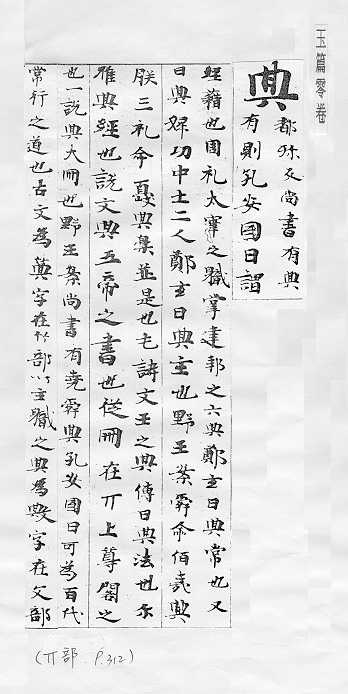 玉篇零卷
典 都殄反尚書有典
有則孔安國曰謂
經籍也周礼太宰之職掌建邦之六典鄭玄曰典常也又
曰典婦功中士二人鄭玄曰典主也野王案舜命伯夷典
朕三礼命夔典樂並是也毛詩文王之典傳曰典法也尒
雅典經也說文典五帝之書也從冊在丌上尊閣之
也一說典大冊也野王案尚書有堯舜典孔安國曰可為百代
常行之道也古文為䈏字在竹部以主職之典為敟字在攴部
(丌部 P.312)